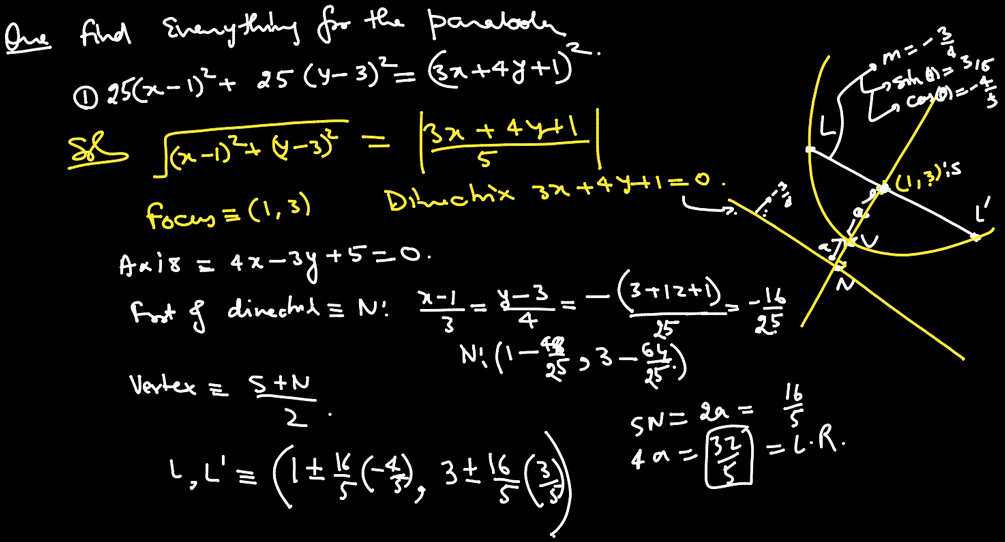 Que find Everything for the parabola
① 25(x-1)² + 25(y-3)² = (3x+4y+1)².
Sol √((x-1)²+(y-3)²) = |(3x+4y+1)/5|
focus ≡ (1,3) Directrix 3x+4y+1=0.
Axis ≡ 4x-3y+5=0.
Foot of directrix ≡ N: (x-1)/3 = (y-3)/4 = -(3+12+1)/25 = -16/25
N: (1-48/25, 3-64/25)
Vertex ≡ (S+N)/2.
SN = 2a = 16/5
4a = 32/5 = L.R.
L, L' ≡ (1 ± 16/5(-4/5), 3 ± 16/5(3/5))
m = -3/4
sin θ = 3/5
cos(θ) = -4/5
L
(1,3) is
L'
a
a
V
N